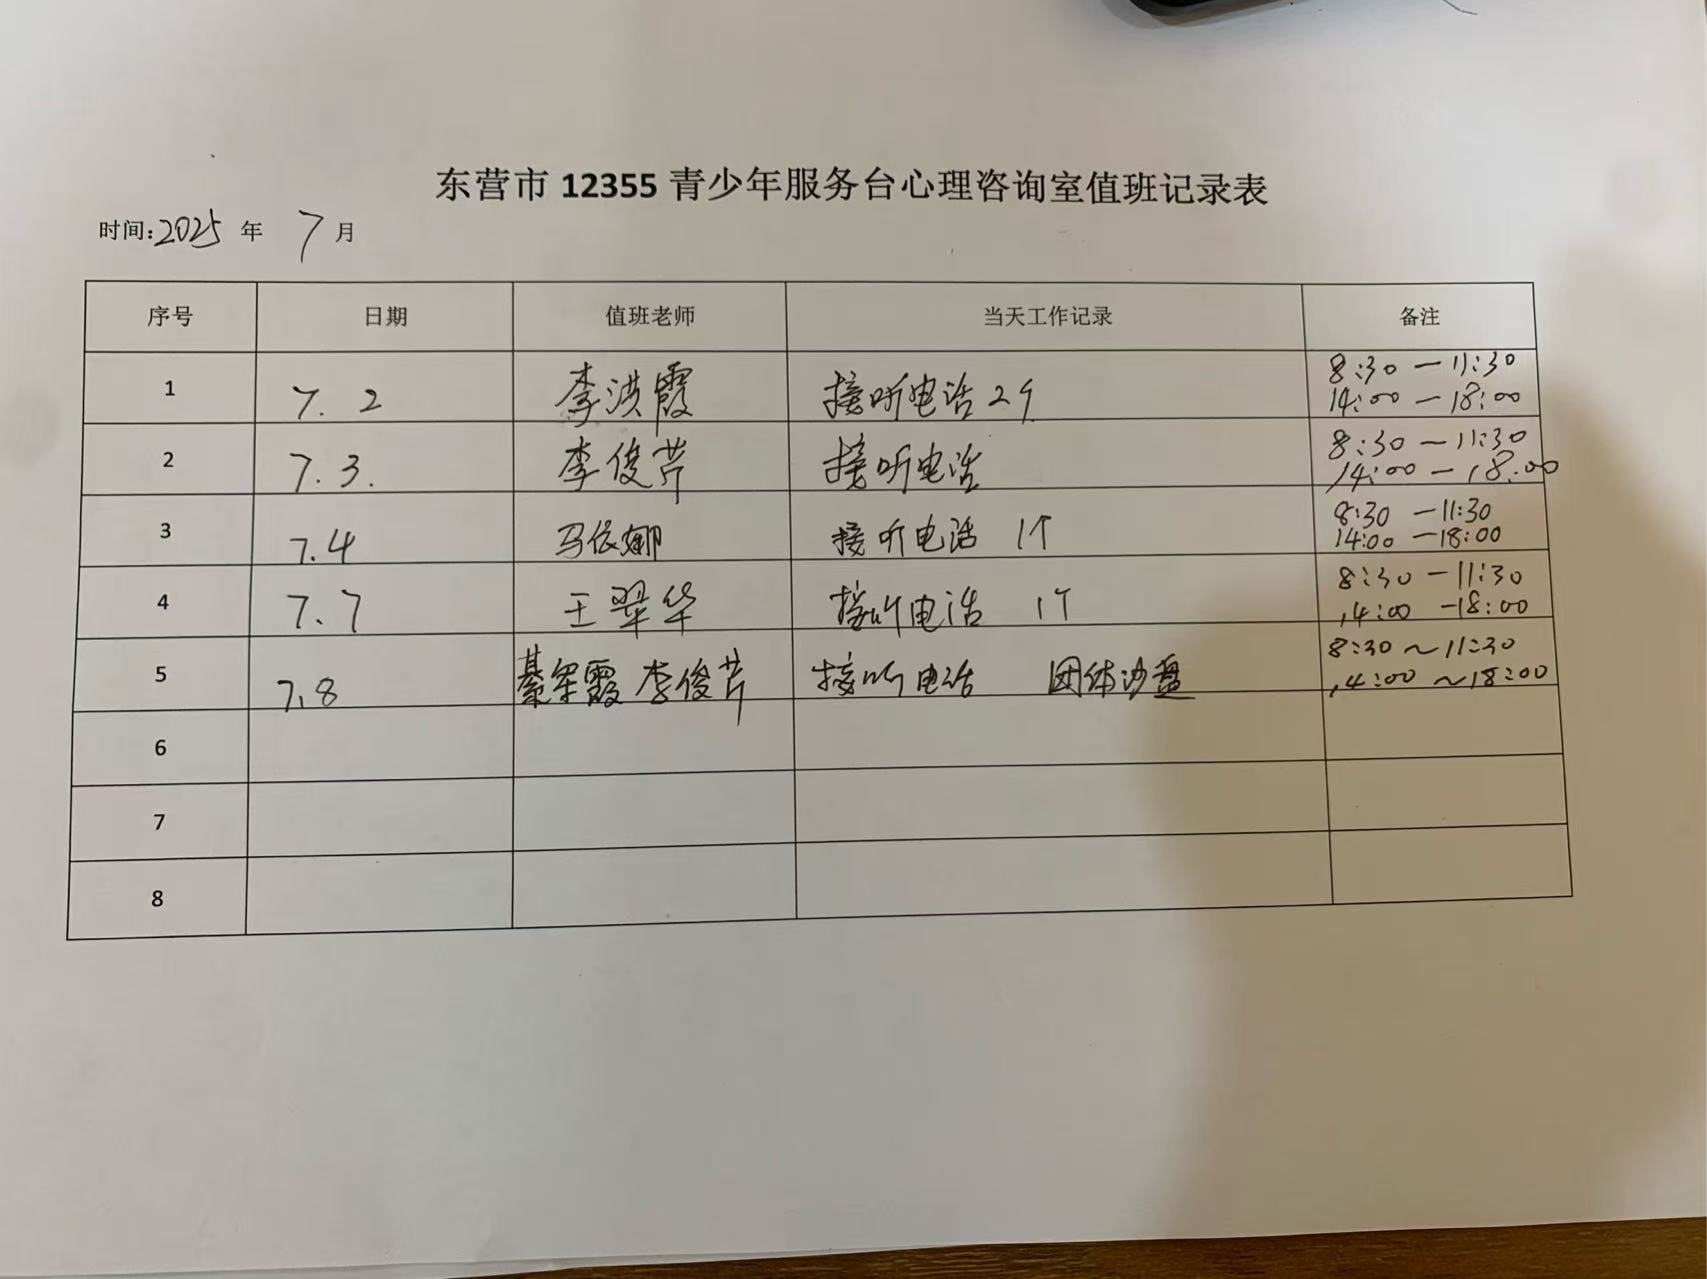 东营市 12355 青少年服务台心理咨询室值班记录表
时间:2025 年 7 月
序号 日期 值班老师 当天工作记录 备注
1 7.2 李洪霞 接听电话2个 8:30 — 11:30
14:00 — 18:00
2 7.3. 李俊芹 接听电话 8:30 — 11:30
14:00 — 18:00
3 7.4 马依娜 接听电话 1个 8:30 — 11:30
14:00 — 18:00
4 7.7 王翠华 接听电话 1个 8:30 — 11:30
14:00 — 18:00
5 7.8 綦军霞 李俊芹 接听电话 团体沙盘 8:30 ~ 11:30
14:00 ~ 18:00
6
7
8